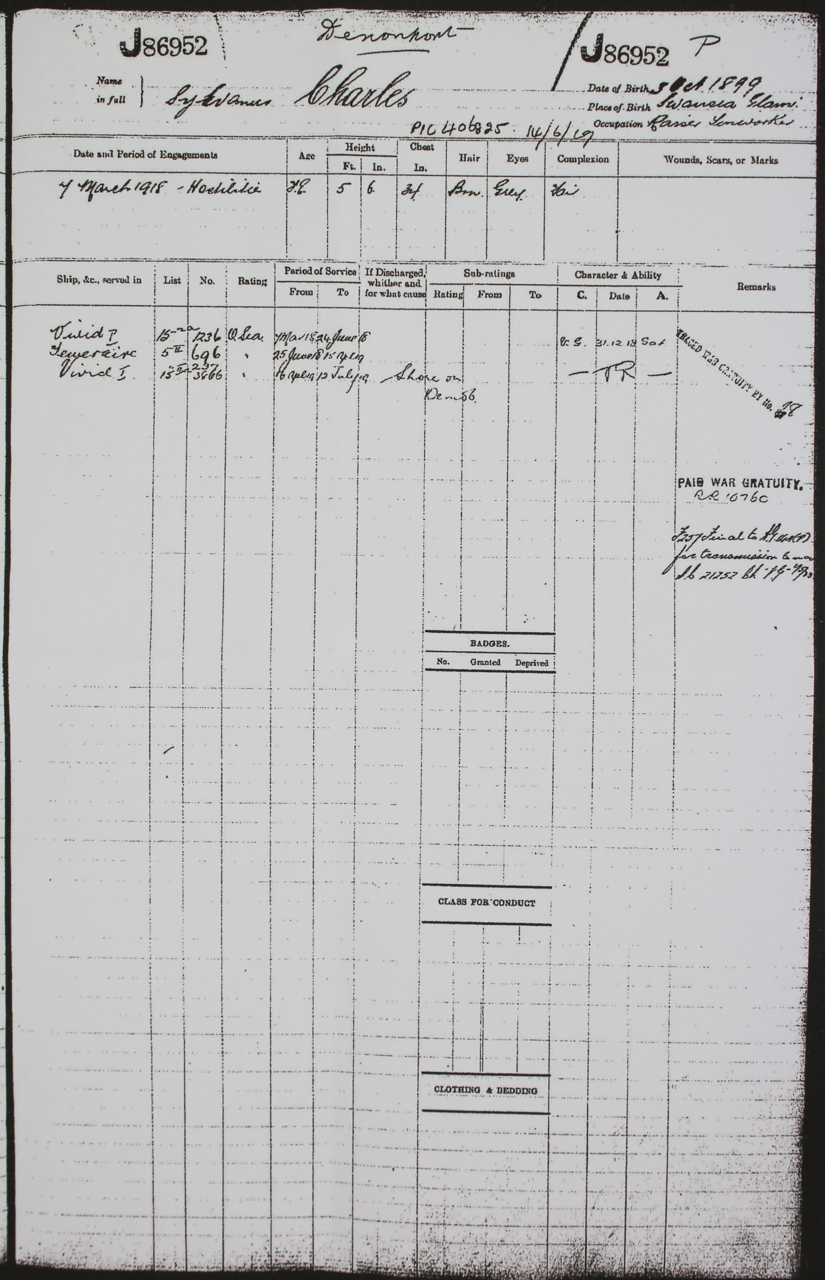 J86952 Devonport J86952 P
Name in full Sylvanus Charles
Date of Birth 3 Oct. 1899
Place of Birth Swansea Glam.
Occupation
P/C 406825. 14/6/19
Date and Period of Engagements Age Height Ft. In. Chest In. Hair Eyes Complexion Wounds, Scars, or Marks
7 March 1918 - Hostilities 5 6 34 Brn. Grey Fair
Ship, &c., served in List No. Rating Period of Service From To If Discharged, whither and for what cause Sub-ratings Rating From To Character & Ability C. Date A. Remarks
Vivid I 15-2a 1236 O Sea 7 Mar 18 24 June 18 V.G. 31.12.18 Sat
Temeraire 5 II 696 " 25 June 18 15 Apl 19
Vivid I 15 " 16 Apl 19 12 July 19 Shore on Demob. — TR —
TRACED WAR GRATUITY BY No. 98
PAID WAR GRATUITY.
RR 10760
for transmission to
BADGES.
No. Granted Deprived
CLASS FOR CONDUCT
CLOTHING & BEDDING